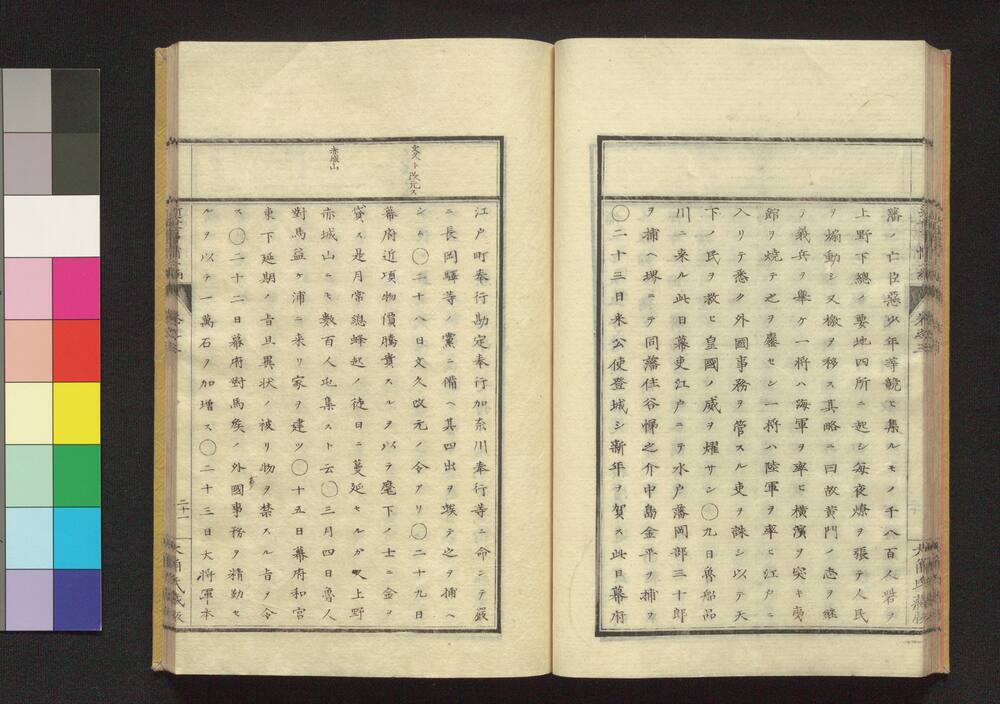 藩ノ亡臣惡少年等競ヒ集ルモノ千八百人砦ヲ
上野下總ノ要地四所ニ起シ毎夜燎ヲ張テ人民
ヲ煽動シ又檄ヲ移ス其略ニ曰故黄門ノ志ヲ継
テ義兵ヲ舉ケ一将ハ海軍ヲ率ヒ横濱ヲ突キ夷
館ヲ焼テ之ヲ鏖セシ一将ハ陸軍ヲ率ヒ江户ニ
入リテ悉ク外國事務ヲ管スル吏ヲ誅シ以テ天
下ノ民ヲ救ヒ皇國ノ威ヲ耀サン〇九日魯船品
川ニ来ル此日幕吏江户ニテ水户藩岡部三十郎
ヲ捕ヘ堺ニテ同藩佳谷悌之介中島金平ヲ捕フ
〇二十三日米公使登城シ新年ヲ賀ス此日幕府
文久ト改元ス
赤城山
江户町奉行勘定奉行加奈川奉行等ニ命シテ嚴
ニ長岡驛等ノ黨ニ備ヘ其四出ヲ竢テ之ヲ捕ヘ
シム〇二十八日文久改元ノ令アリ〇二十九日
幕府近項物價騰貴スルヲ以テ麾下ノ士ニ金ヲ
貸ス是月常總蜂起ノ徒日ニ蔓延セルガ又上野
赤城山ニモ數百人屯集スト云〇三月四日魯人
對馬益ヶ浦ニ来リ家ヲ建ツ〇十五日幕府和宮
東下延期ノ旨且異状ノ被リ物ヲ禁スル旨ヲ令
ス〇二十二日幕府對馬矦ノ外國事務ヲ精勤セ
ルヲ以テ一萬石ヲ加增ス〇二十三日大将軍本
二十一